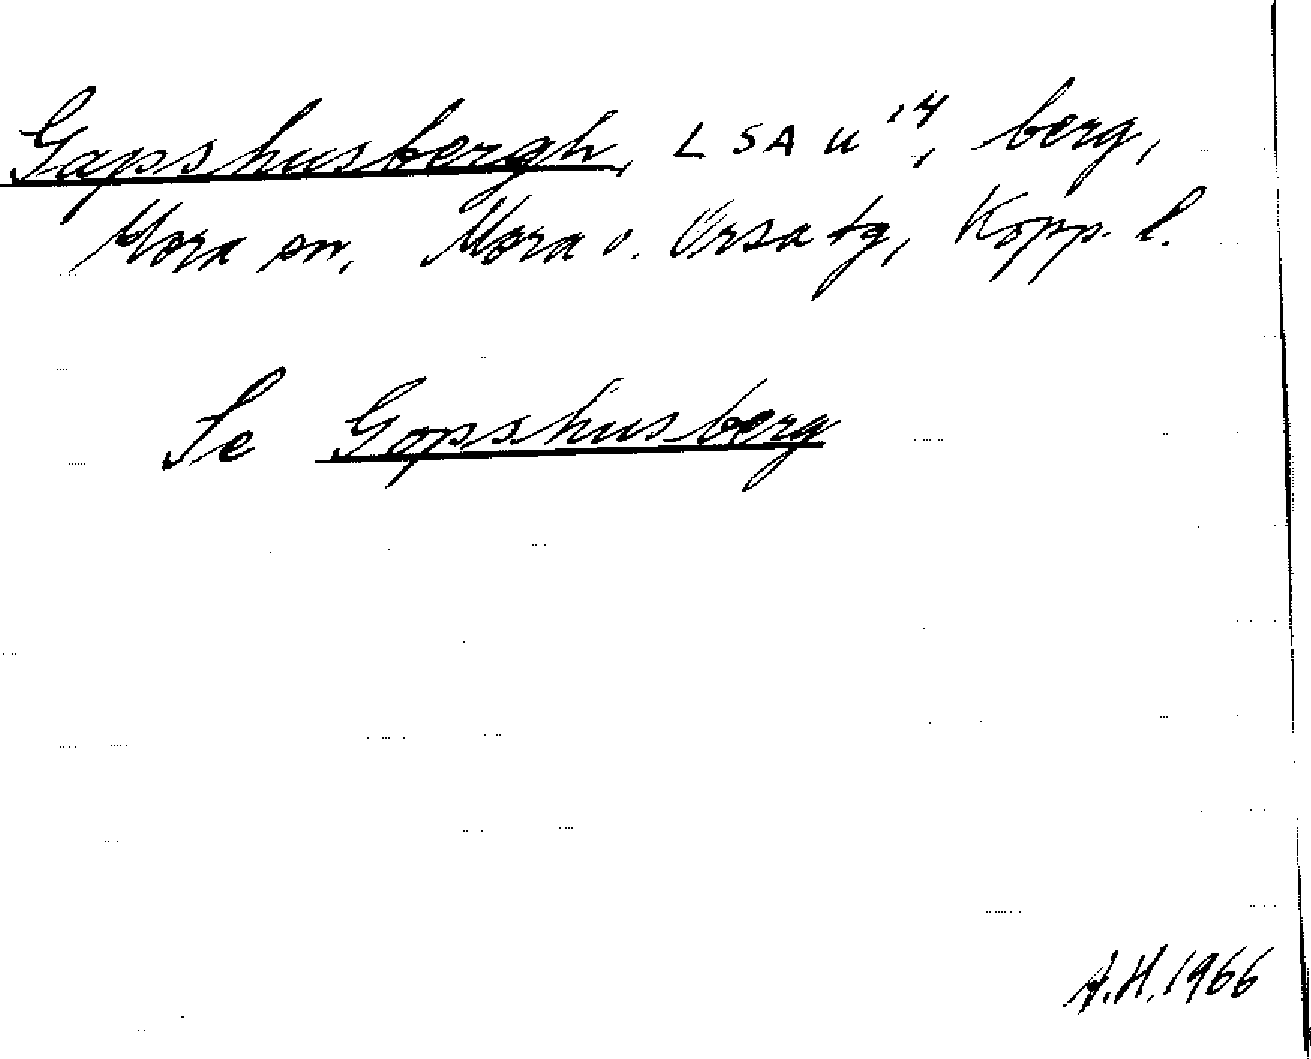 Gapshusbergh, LSA u¹⁴, berg,
Mora sn, Mora o. Orsa tg, Kopp. l.
Se Gopshusberg
A.H. 1966